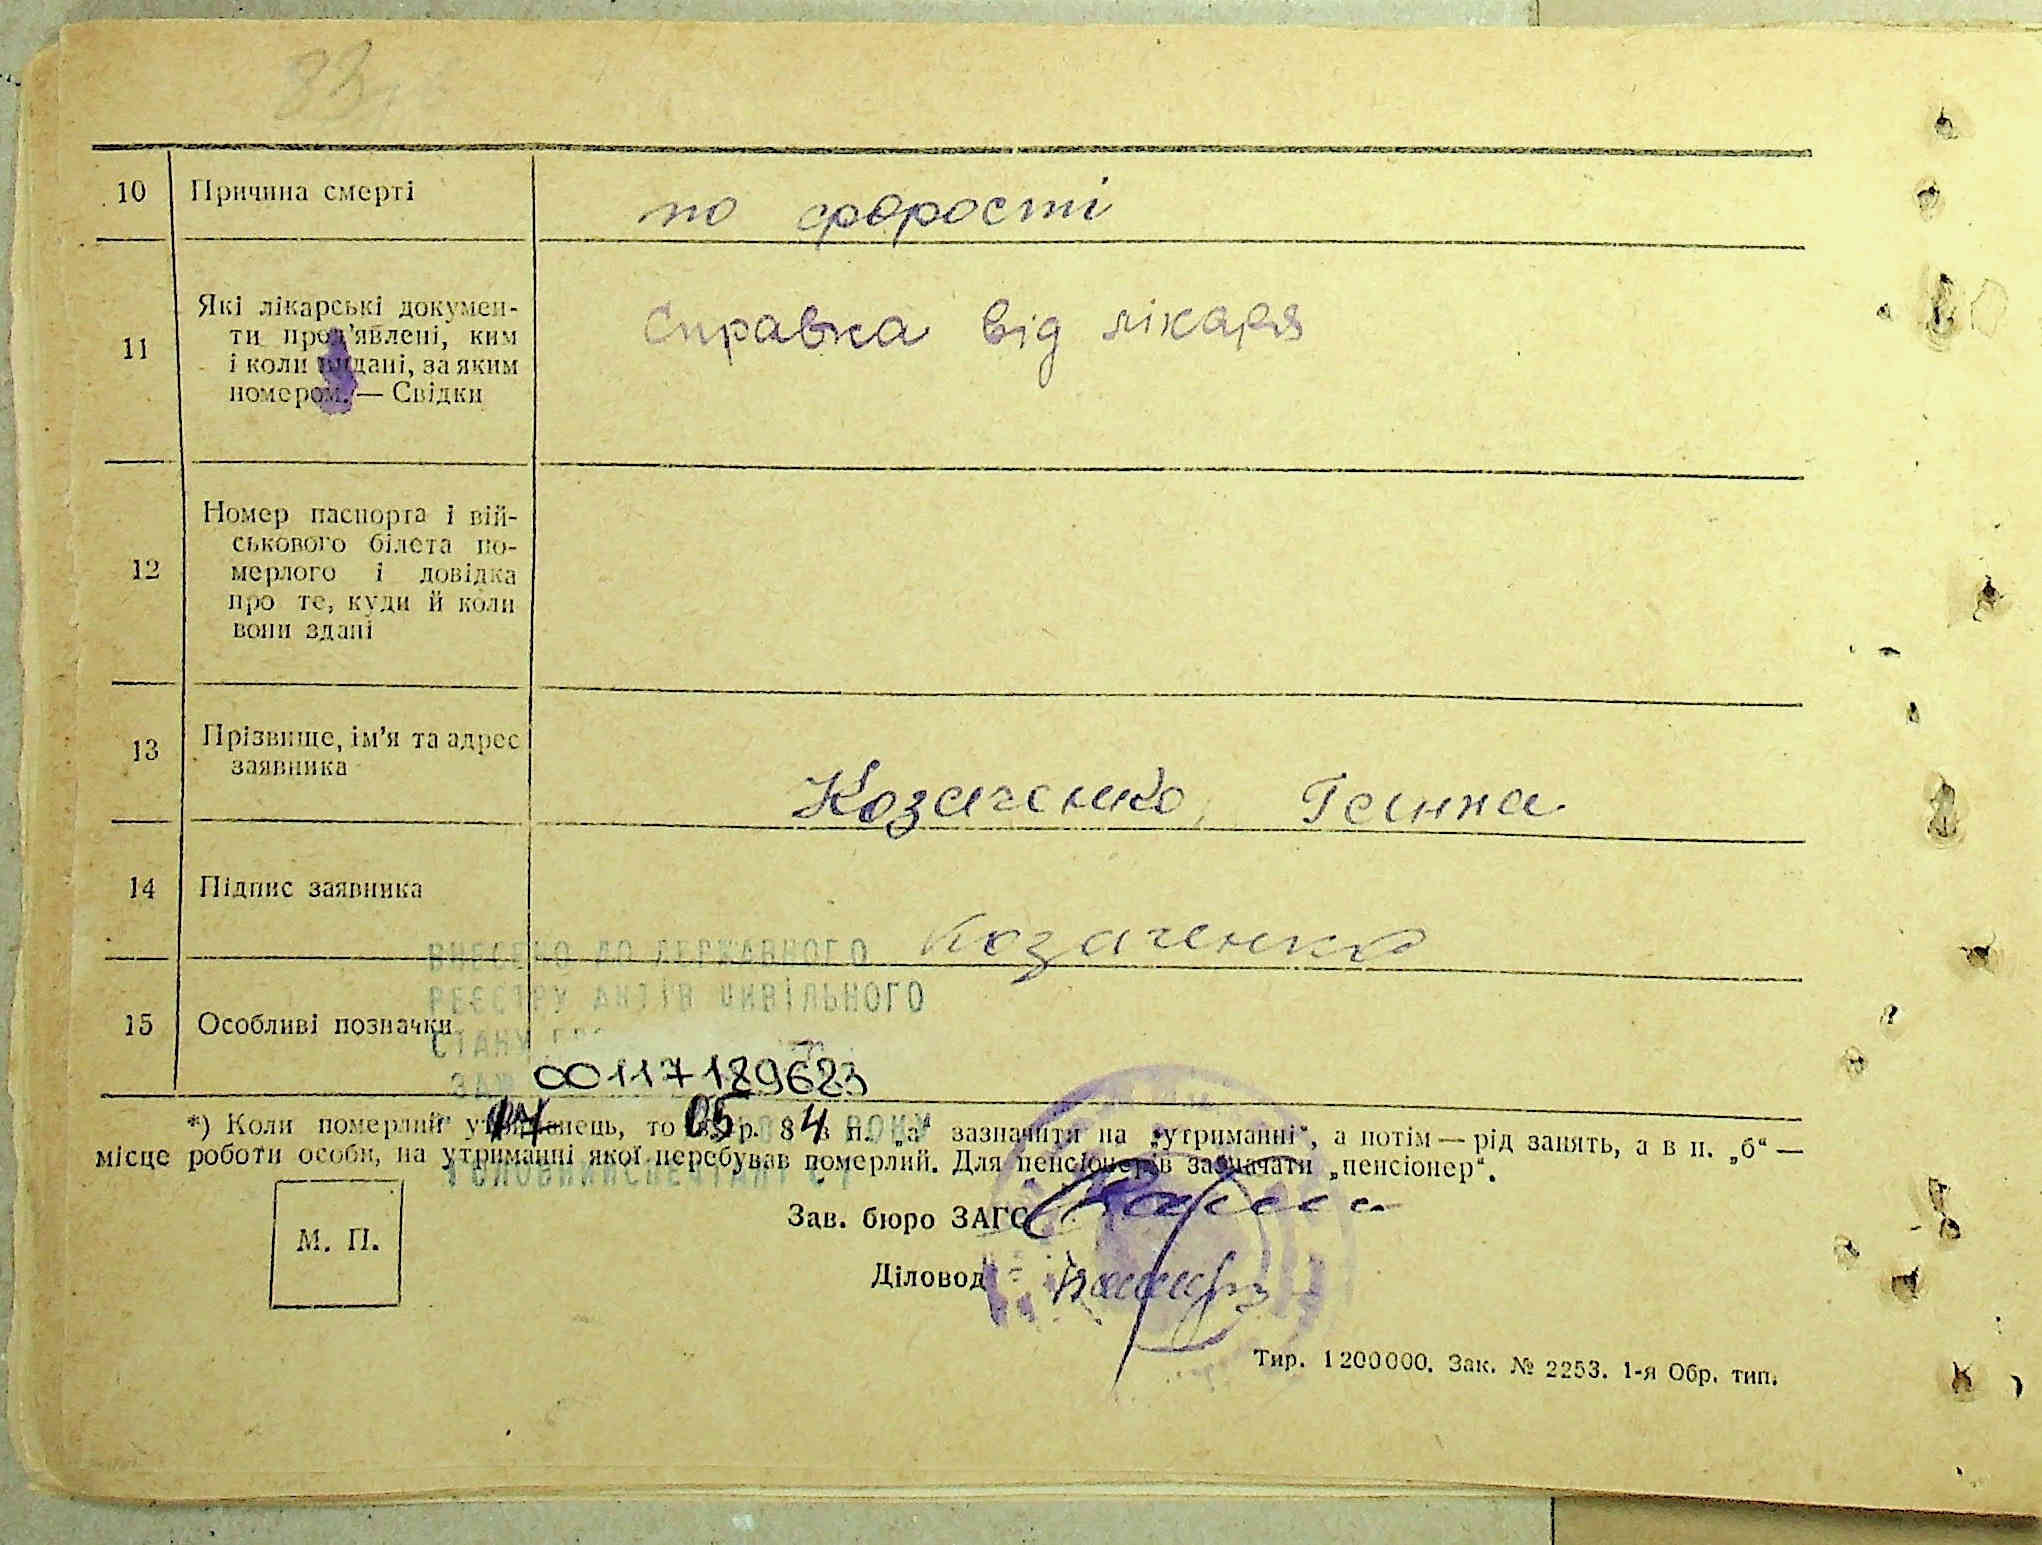 83
10 Причина смерті по старості
11 Які лікарські докумен-
ти пред'явлені, ким
і коли видані, за яким
номером. — Свідки
Справка від лікаря
12 Номер паспорта і вій-
ськового білета по-
мерлого і довідка
про те, куди й коли
вони здані
13 Прізвище, ім'я та адрес
заявника
Козаченко, Ганна
14 Підпис заявника
Козаченко
ВНЕСЕНО ДО ДЕРЖАВНОГО
РЕЄСТРУ АКТІВ ЦИВІЛЬНОГО
15 Особливі позначки
СТАНУ
00117189623
*) Коли померлий утриманець, то в гр. 8 в п. „а“ зазначити на „утриманні“, а потім — рід занять, а в п. „б“ —
місце роботи особи, на утриманні якої перебував померлий. Для пенсіонерів зазначати „пенсіонер“.
М. П.
Зав. бюро ЗАГС
Діловод
Тир. 1200000. Зак. № 2253. 1-я Обр. тип.